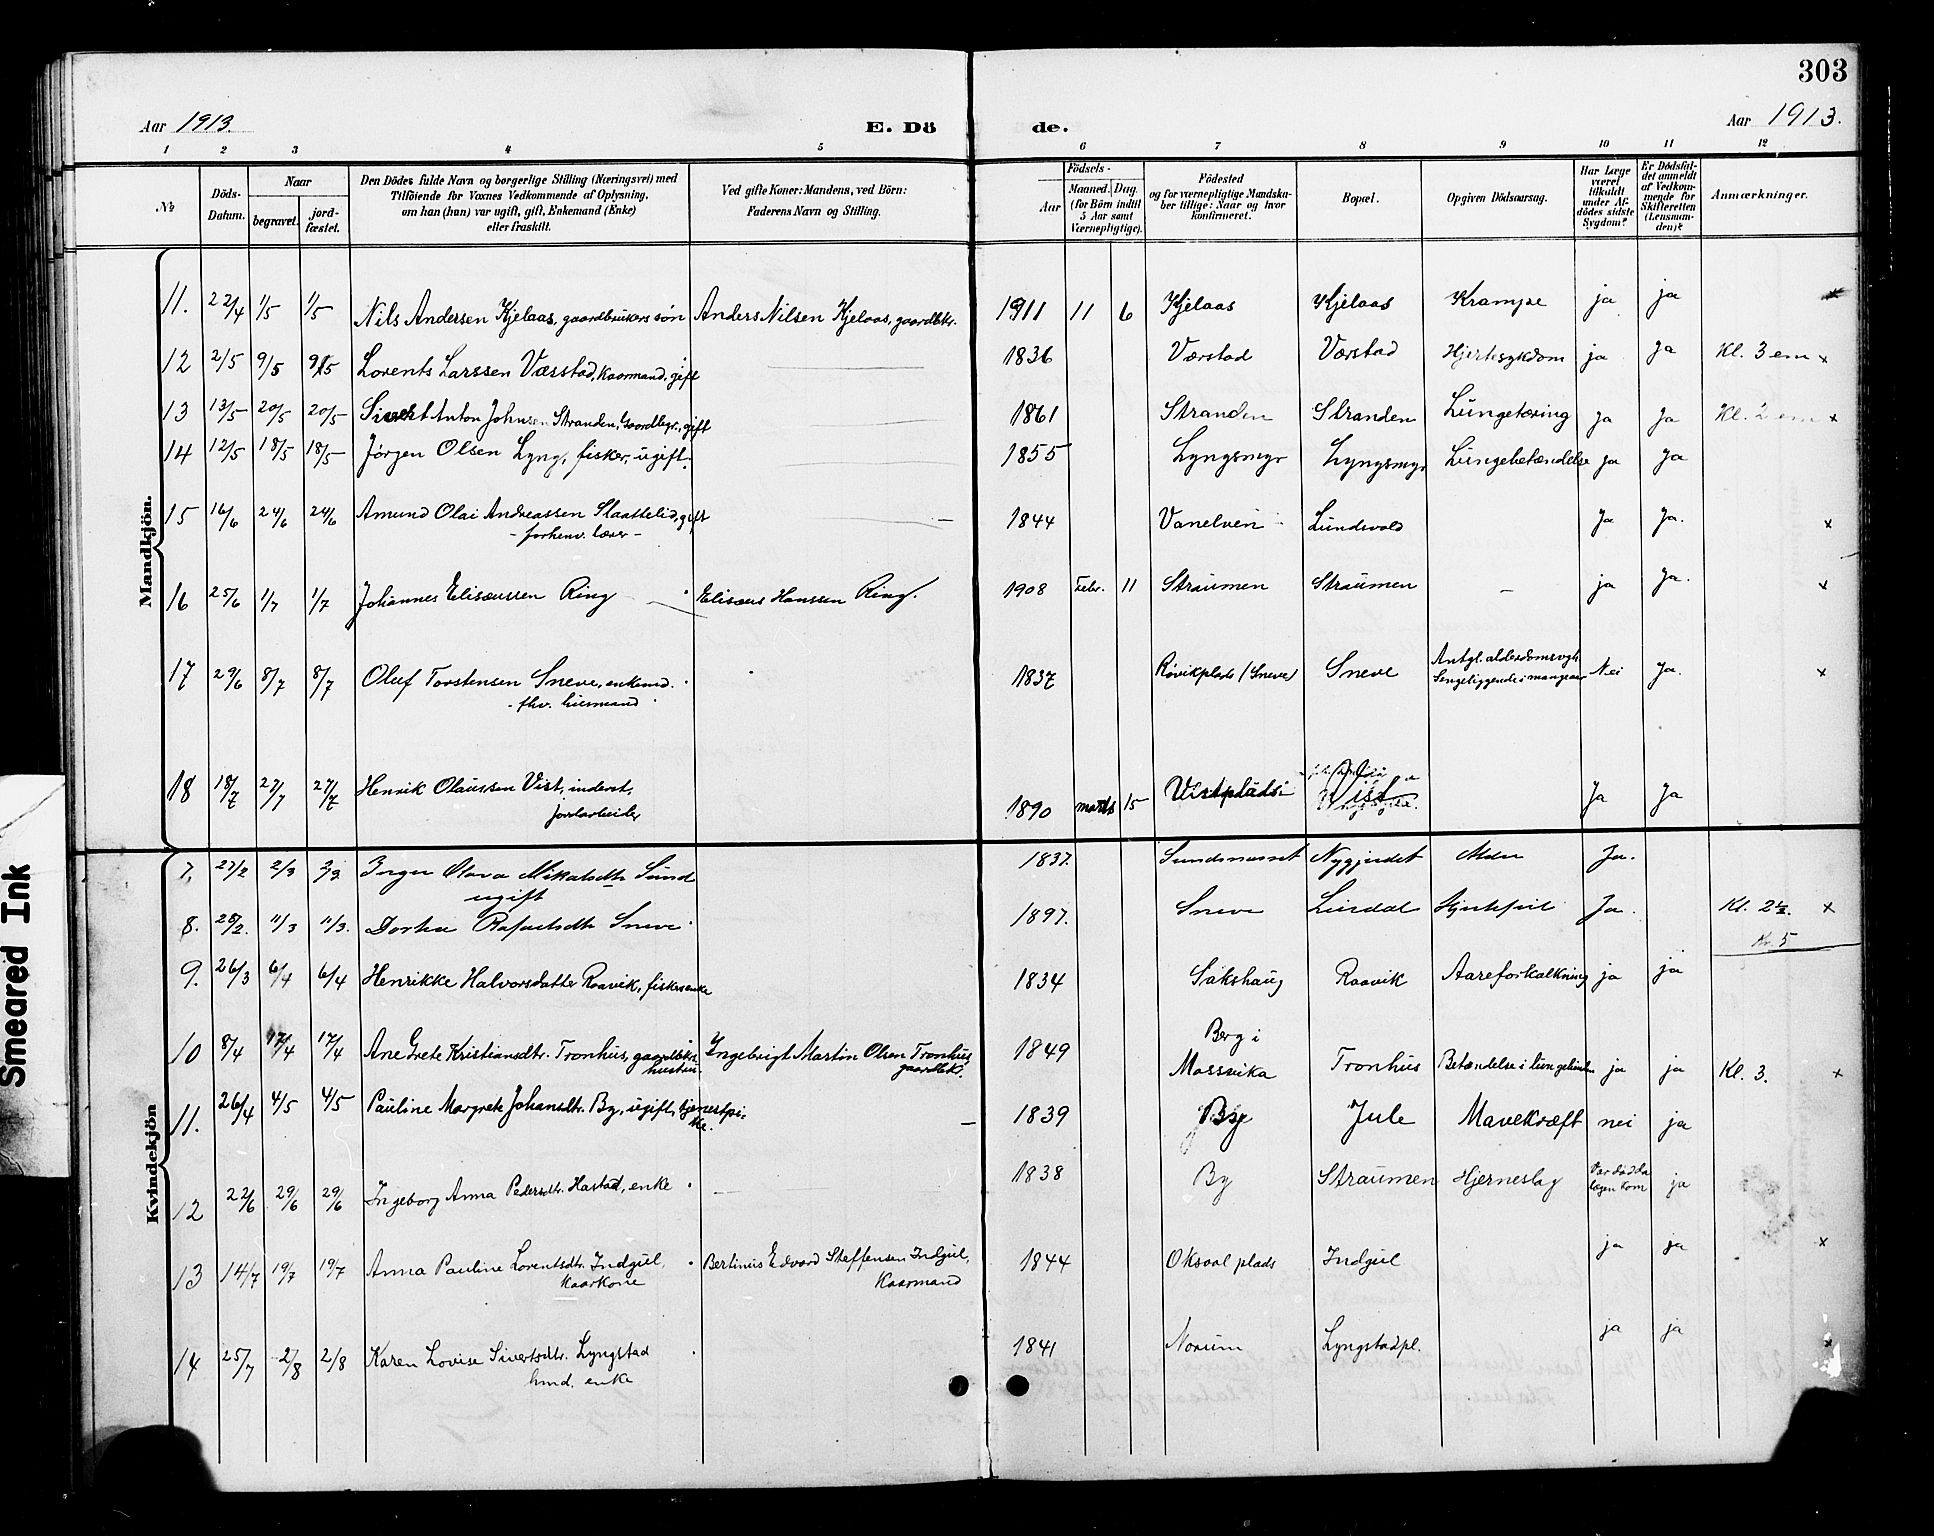 303
Aar 1913.
E. Dö
de.
Aar 1913.
1 2 3 4 5 6 7 8 9 10 11 12
№
Döds-
Datum.
Naar
begravet.
jord-
fæstet.
Den Dödes fulde Navn og borgerlige Stilling (Næringsvei) med
Tilföiende for Voxnes Vedkommende af Oplysning,
om han (hun) var ugift, gift, Enkemand (Enke)
eller fraskilt.
Ved gifte Koner: Mandens, ved Börn:
Faderens Navn og Stilling.
Aar
Födsels-
Maaned. Dag.
(for Börn indtil
5 Aar samt
Værnepligtige).
Födested
og for værnepligtige Mandska-
ber tillige: Naar og hvor
konfirmeret.
Bopæl.
Opgiven Dödsaarsag.
Har Læge
været
tilkaldt
under Af-
dödes sidste
Sygdom?
Er Dödsfal-
det anmeldt
af Vedkom-
mende for
Skifteretten
(Lensman-
den)?
Anmærkninger.
Mandkjön.
11. 22/4 1/5 1/5 Nils Andersen Kjelaas, gaardbrukers søn Anders Nilsen Kjelaas, gaardbkr. 1911 11 6 Kjelaas Kjelaas Krampe ja ja
12 2/5 9/5 9/5 Lorents Larssen Væsstad, kaarmand, gift 1836 Værstad Værstad Hjertesykdom ja ja Kl. 3 em x
13 13/5 20/5 20/5 Sivert Anton Johnsen Stranden, Gaardbgr., gift 1861 Stranden Stranden Lungetæring ja ja Kl. 2 em x
14 12/5 18/5 18/5 Jørgen Olsen Lyng, fisker, ugift. 1855 Lyngsmyr Lyngsmyr Lungebetændelse ja ja
15 16/6 24/6 24/6 Amund Olai Andreassen Slaattelid, gift 1844 Vanelven Lundsvold Ja Ja. x
- forhenv. lærer -
16 25/6 1/7 1/7 Johannes Elisæussen Ring Elisæus Hanssen Ring. 1908 Febr. 11 Straumen Straumen - ja Ja. x
17 29/6 8/7 8/7 Oluf Torstensen Sneve, enkemd. 1837 Røvikplads (Sneve) Sneve Antgl. alderdomssvgh. Nei Ja. x
- fhv. husmand Sengeliggende i mange aar
18 18/7 27/7 27/7 Henrik Olaussen Vist, inderst, 1890 marts 15 Vistplads Vist Ja Ja
jordarbeider
Kvindekjön
7. 27/2 2/3 2/3 Inger Olava Mikalsdtr Sund 1837. Sundsnesset Nygjerdet Alder Ja.
ugift
8. 28/2. 11/3 11/3. Dortea Rafaelsdtr Sneve 1897. Sneve Lirdal Hjertefeil Ja. Kl. 2½. x
Kr. 5
9. 26/3 6/4 6/4 Henrikke Halvorsdatter Raavik, fiskerenke 1834 Sakshaug Raavik Aareforkalkning ja ja
10 8/4 17/4 17/4 Ane Grete Kristiansdtr. Tronhus, gaardbkrs. Ingebrigt Martin Olsen Tronhus 1849 Berg i
hustru. gaardbkr. Mossvika Tronhus Betændelse i lungehinden ja ja Kl. 3. x
11. 26/4 4/5 4/5 Pauline Margrete Johansdtr. By, ugift, tjenestpi- 1839 By Jule Mavekræft nei ja
ke.
12 22/6 29/6 29/6 Ingeborg Anna Pedersdtr. Hastad, enke 1838 By Straumen Hjerneslag Var død da ja
lægen kom
13 14/7 19/7 19/7 Anna Pauline Lorentsdtr. Indgul, Bertinus Edvard Steffensen Indgul, 1844 Oksaal plads Indgul ja ja x
kaarkone Kaarmand
14 25/7 2/8 2/8 Karen Lovise Sivertsdtr. Lyngstad 1841 Norum Lyngstadpl. ja ja x
hmd. enke
Smeared Ink